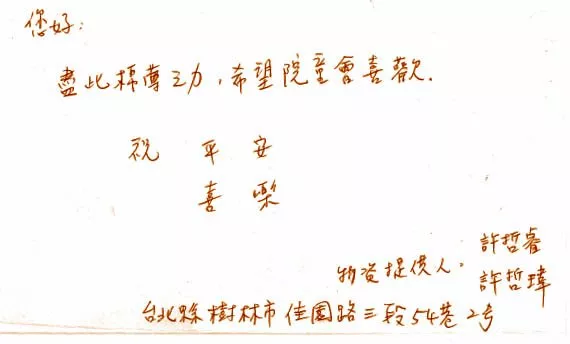 您好:
盡此棉薄之力,希望院童會喜歡.
祝 平 安
喜 樂
許哲睿
物資提供人:
許哲瑋
台北縣樹林市佳園路三段54巷2号